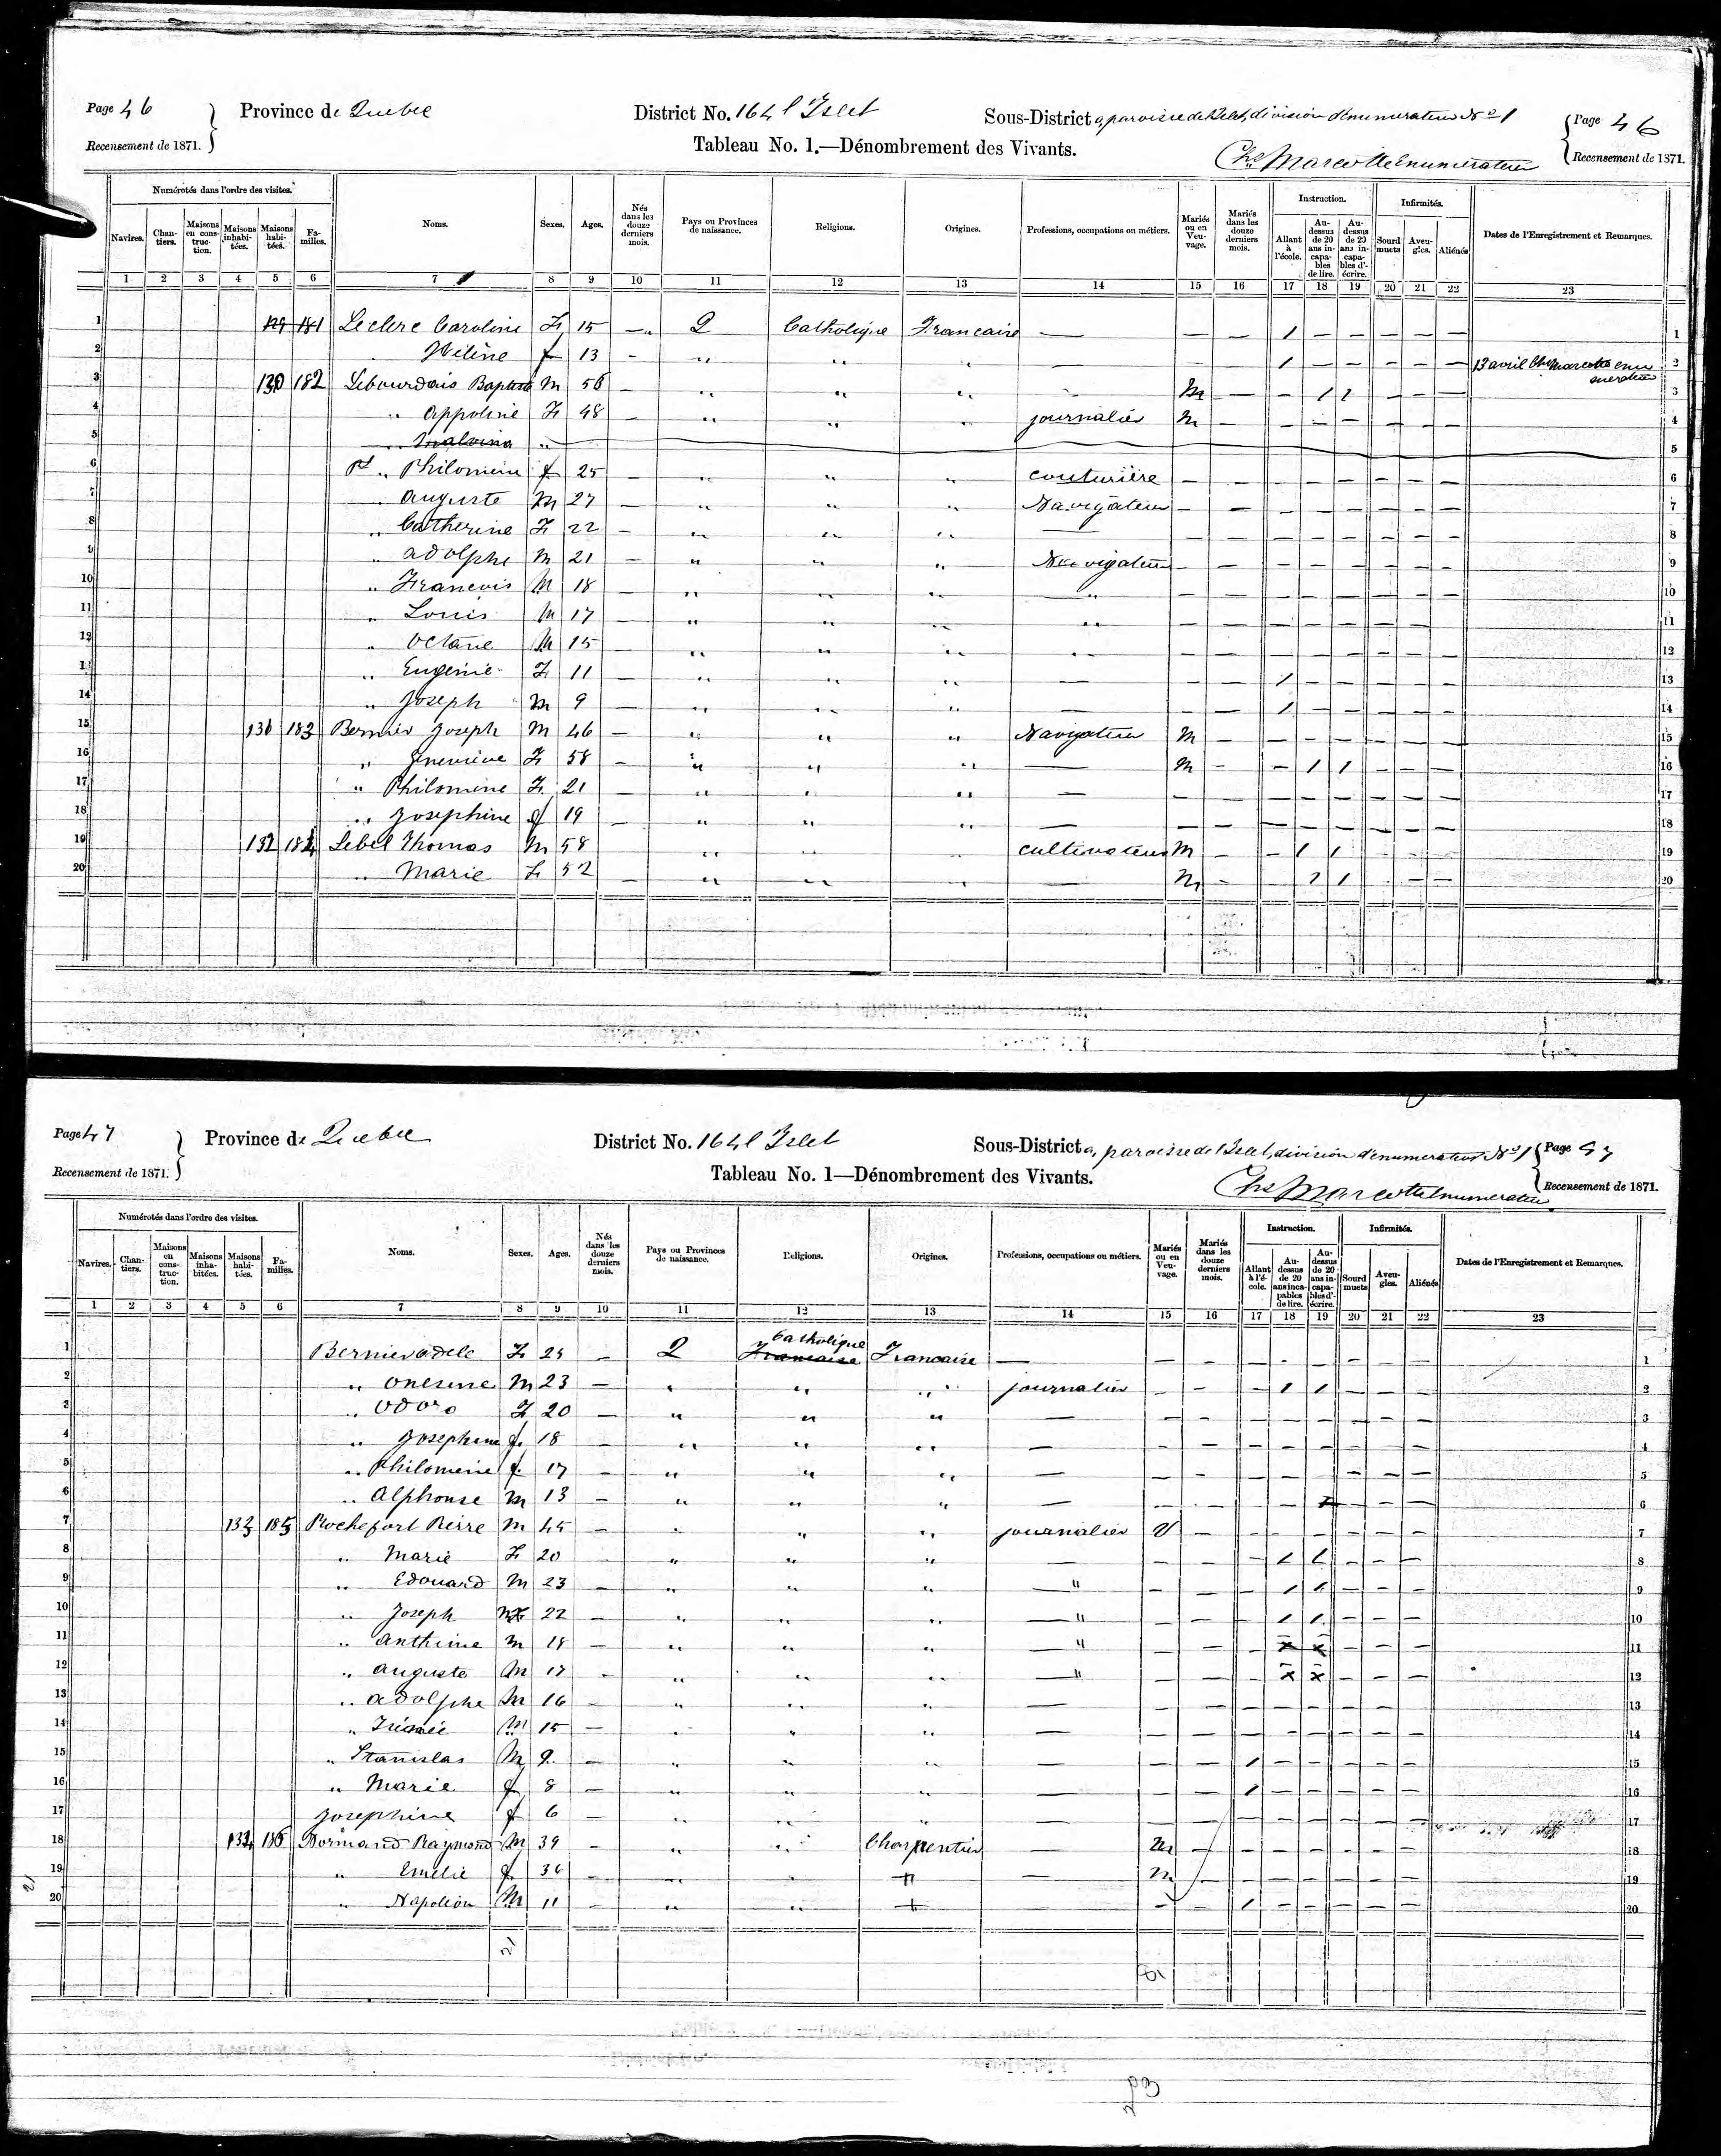 Page 46 Province de Quebec District No. 164 l'Islet Sous-District a, paroisse de l'Islet, division d'enumerateur No 1 Page 46
Recensement de 1871. Tableau No. 1.—Dénombrement des Vivants. Chs Marcotte Enumerateur Recensement de 1871.
Numérotés dans l'ordre des visites. Instruction. Infirmités.
Navires. Chantiers. Maisons en construction. Maisons inhabitées. Maisons habitées. Familles. Noms. Sexes. Ages. Nés dans les douze derniers mois. Pays ou Provinces de naissance. Religions. Origines. Professions, occupations ou métiers. Mariés ou en Veuvage. Mariés dans les douze derniers mois. Allant à l'école. Au-dessus de 20 ans incapables de lire. Au-dessus de 20 ans incapables d'écrire. Sourd muets Aveugles. Aliénés Dates de l'Enregistrement et Remarques.
1 2 3 4 5 6 7 8 9 10 11 12 13 14 15 16 17 18 19 20 21 22 23
1 129 181 Leclerc Caroline F 15 — Q Catholique Francaise — — — 1 — — — — — 1
2 Héléne f 13 - " " " — — 1 — — — — — 13 avril Chs Marcotte enumerateur 2
3 130 182 Lebourdais Baptiste M 56 — " " " - M — — 1 1 — — — 3
4 " Appoline F 48 — " " " journalier M — — — — — — — 4
5 " Malvina " 5
6 " Philomene f 25 — " " " couturière — — — — — — — — 6
7 " Auguste M 27 — " " " Navigateur — — — — — — — — 7
8 " Catherine F 22 — " " " — — — — — — — — — 8
9 " Adolphe M 21 — " " " Navigateur — — — — — — — — 9
10 " Francois M 18 — " " " " — — — — — — — — 10
11 " Louis M 17 — " " " " — — — — — — — — 11
12 " Octave M 15 — " " " " — — — — — — — — 12
13 " Eugenie F 11 — " " " — — — 1 — — — — — 13
14 " Joseph M 9 — " " " — — — 1 — — — — — 14
15 131 183 Bernier Joseph M 46 — " " " Navigateur M — — — — — — — 15
16 " Genevieve F 58 — " " " — M — — 1 1 — — — 16
17 " Philomine F 21 — " " " — — — — — — — — — 17
18 " Josephine f 19 — " " " — — — — — — — — — 18
19 132 184 Lebel Thomas M 58 " " " cultivateur M — — 1 1 - — — 19
20 " Marie F 52 — " " " — M — 1 1 — — 20
Page 47 Province de Quebec District No. 164 l'Islet Sous-District a, paroisse de l'Islet, division d'enumerateur No 1 Page 47
Recensement de 1871. Tableau No. 1—Dénombrement des Vivants. Chs Marcotte Enumerateur Recensement de 1871.
Numérotés dans l'ordre des visites. Instruction. Infirmités.
Navires. Chantiers. Maisons en construction. Maisons inhabitées. Maisons habitées. Familles. Noms. Sexes. Ages. Nés dans les douze derniers mois. Pays ou Provinces de naissance. Religions. Origines. Professions, occupations ou métiers. Mariés ou en Veuvage. Mariés dans les douze derniers mois. Allant à l'école. Au-dessus de 20 ans incapables de lire. Au-dessus de 20 ans incapables d'écrire. Sourd muets Aveugles. Aliénés Dates de l'Enregistrement et Remarques.
1 2 3 4 5 6 7 8 9 10 11 12 13 14 15 16 17 18 19 20 21 22 23
1 Bernier Adele F 25 — Q Francaise Catholique Francaise — — — — - — — — — 1
2 " Onesime M 23 — " " " journalier — — — 1 1 — — — 2
3 " Odora F 20 — " " " — — — — — — — — — 3
4 " Josephine f 18 " " " — — — — — — — — — 4
5 " Philomene f 17 — " " " — — — — — — — — — 5
6 " Alphonse M 13 — " " " — — — — — — — — 6
7 133 185 Rochefort Pierre M 45 — " " " journalier V — — — — — — — 7
8 " Marie F 20 " " " — — — — 1 1 — — — 8
9 " Edouard M 23 — " " " " — — — 1 1 — — — 9
10 " Joseph M 22 — " " " " — — — 1 1 — — — 10
11 " Anthime M 18 — " " " " — — x x — — — 11
12 " Auguste M 17 - " " " " — — — x x — — — 12
13 " Adolphe M 16 — " " " — — — — — — — — — 13
14 " M 15 — " " " — — — — — — — — — 14
15 " Stanislas M 9 — " " " — — — 1 — — — — — 15
16 " Marie f 8 — " " " — — — 1 — — — — — 16
17 Josephine f 6 — " " " — — — — — — — — 17
18 134 186 Normand Raymond M 39 — " " Charpentier — M — — — — — — — 18
19 " Emelie f 36 — " " " — M — — — — — — — 19
20 " Napoléon M 11 — " " " — — — 1 — — — — — 20
21
21